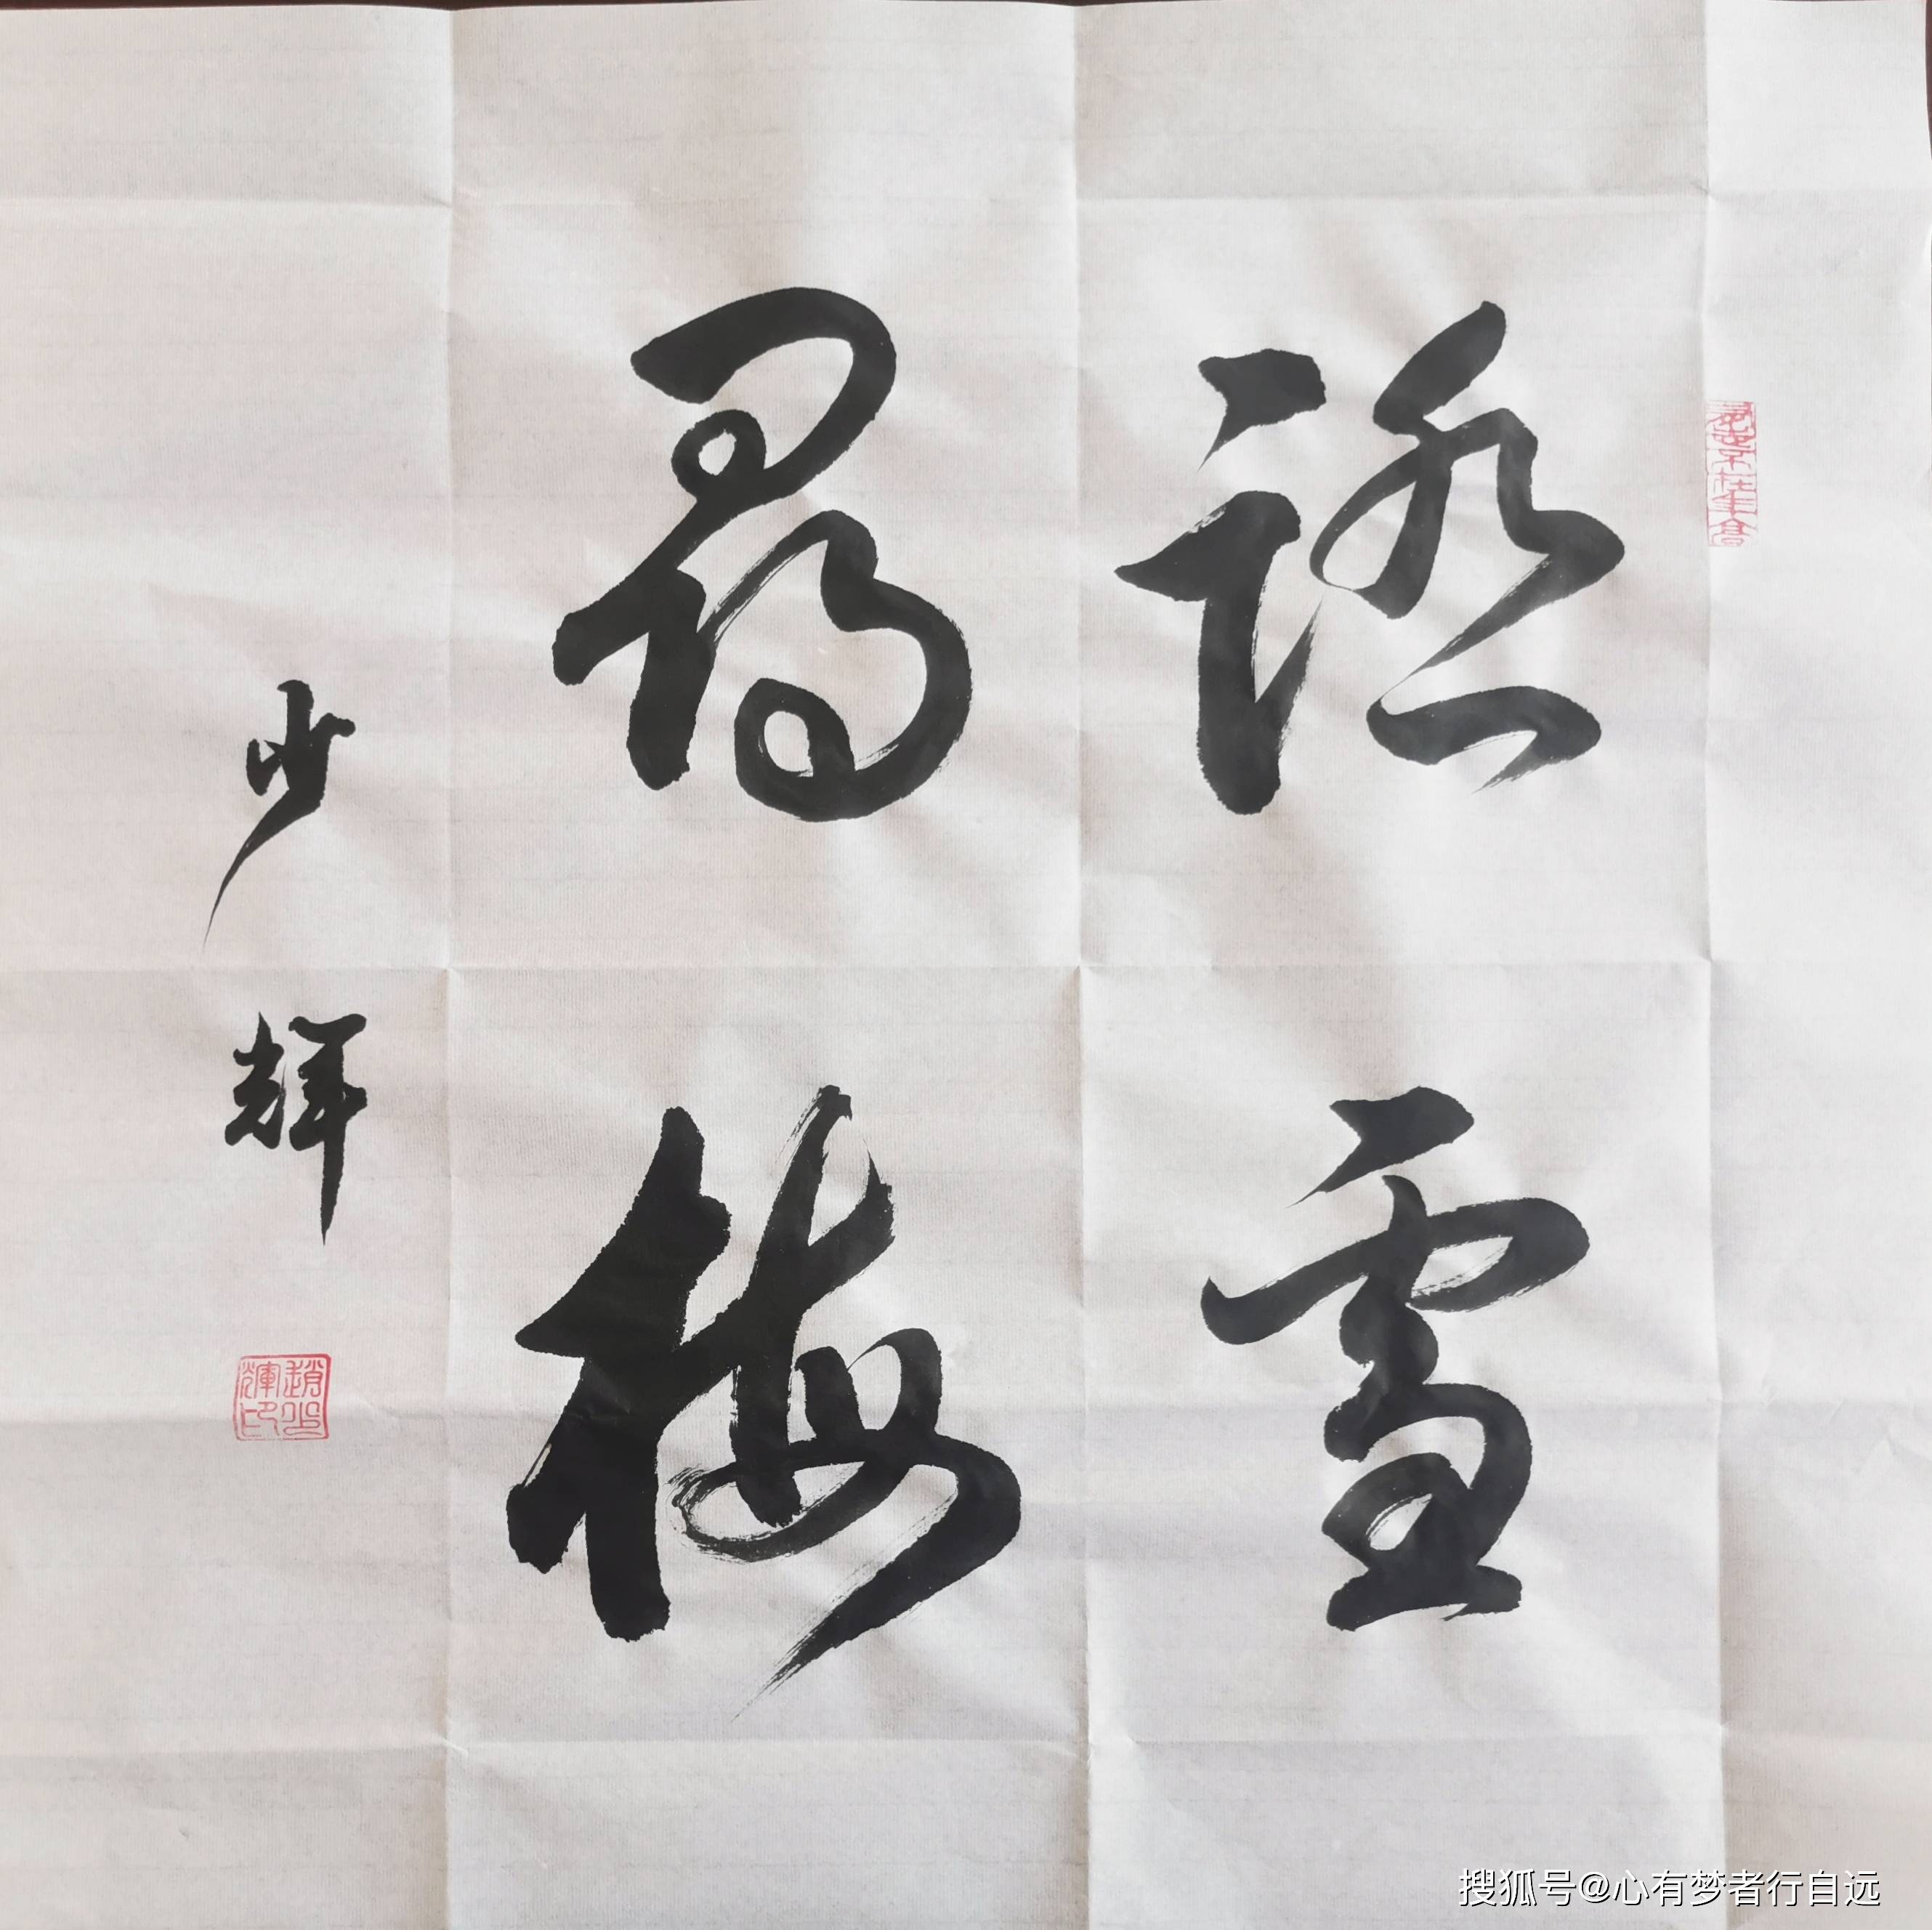 踏雪
尋梅
少輝
趙少輝印
搜狐号@心有梦者行自远